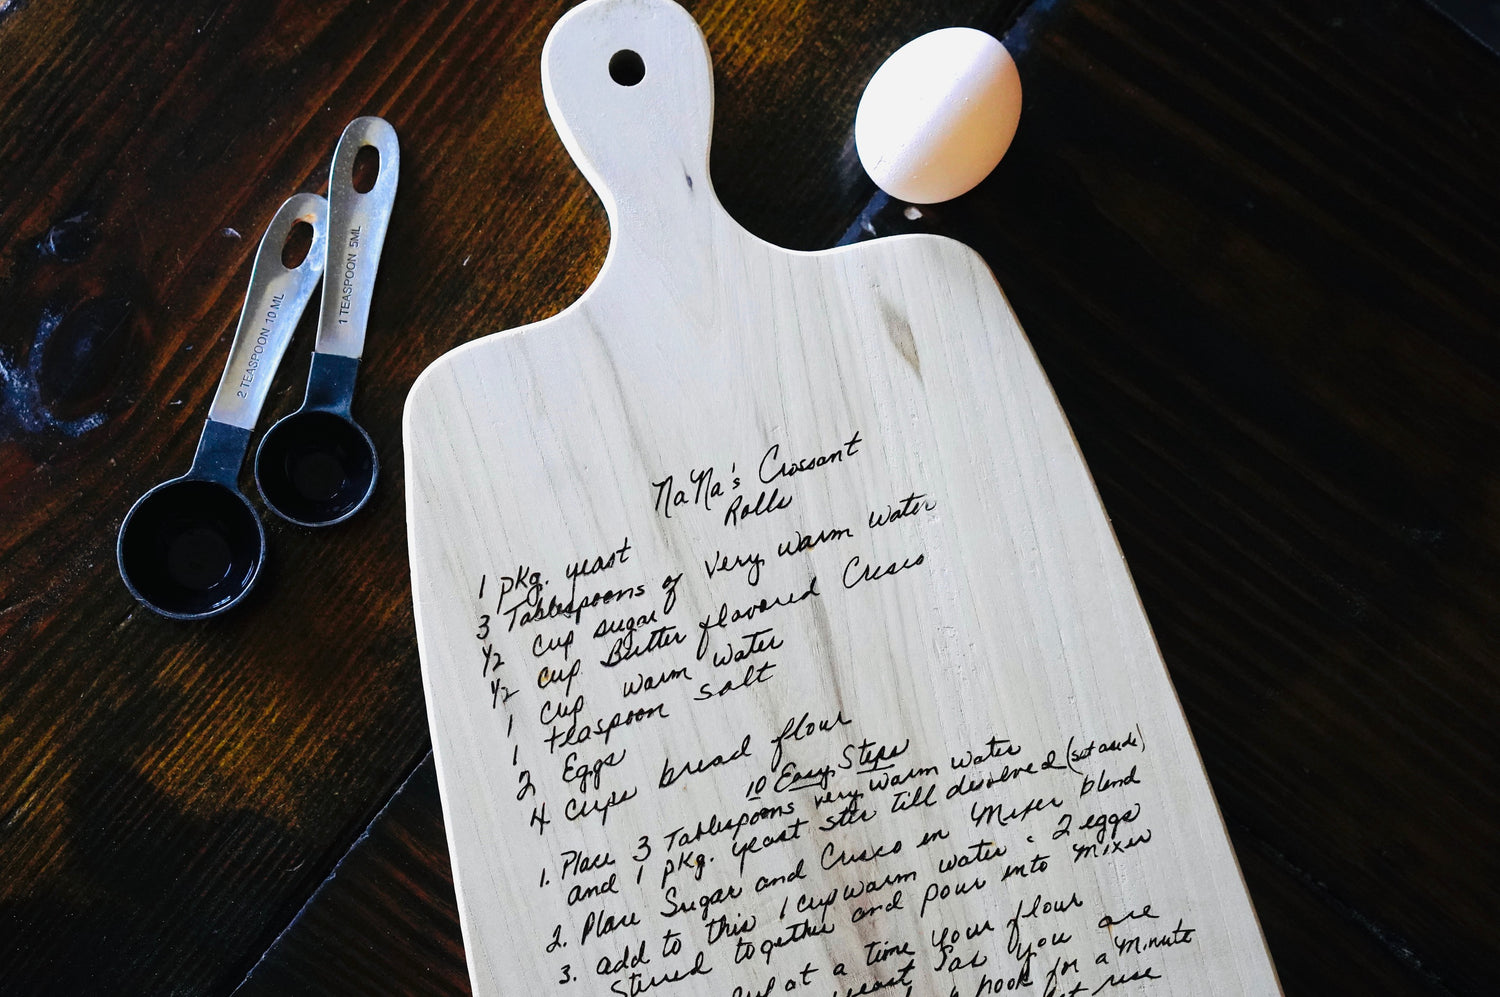 2 TEASPOON 10 ML
1 TEASPOON 5ML
NaNa's Crossant
Rolls
1 pkg. yeast
3 Tablespoons of Very warm water
1/2 cup sugar
1/2 cup Butter flavored Cresco
1 cup warm water
1 teaspoon salt
2 Eggs
4 cups bread flour
10 Easy Steps
1. Place 3 Tablespoons very warm water
and 1 pkg. yeast stir till desolved (set aside)
2. Place Sugar and Cresco in Mixer blend
3. add to this 1 cup warm water 2 eggs
stirred together and pour into mixer
at a time your flour
yeast you are
hook for a minute
rise